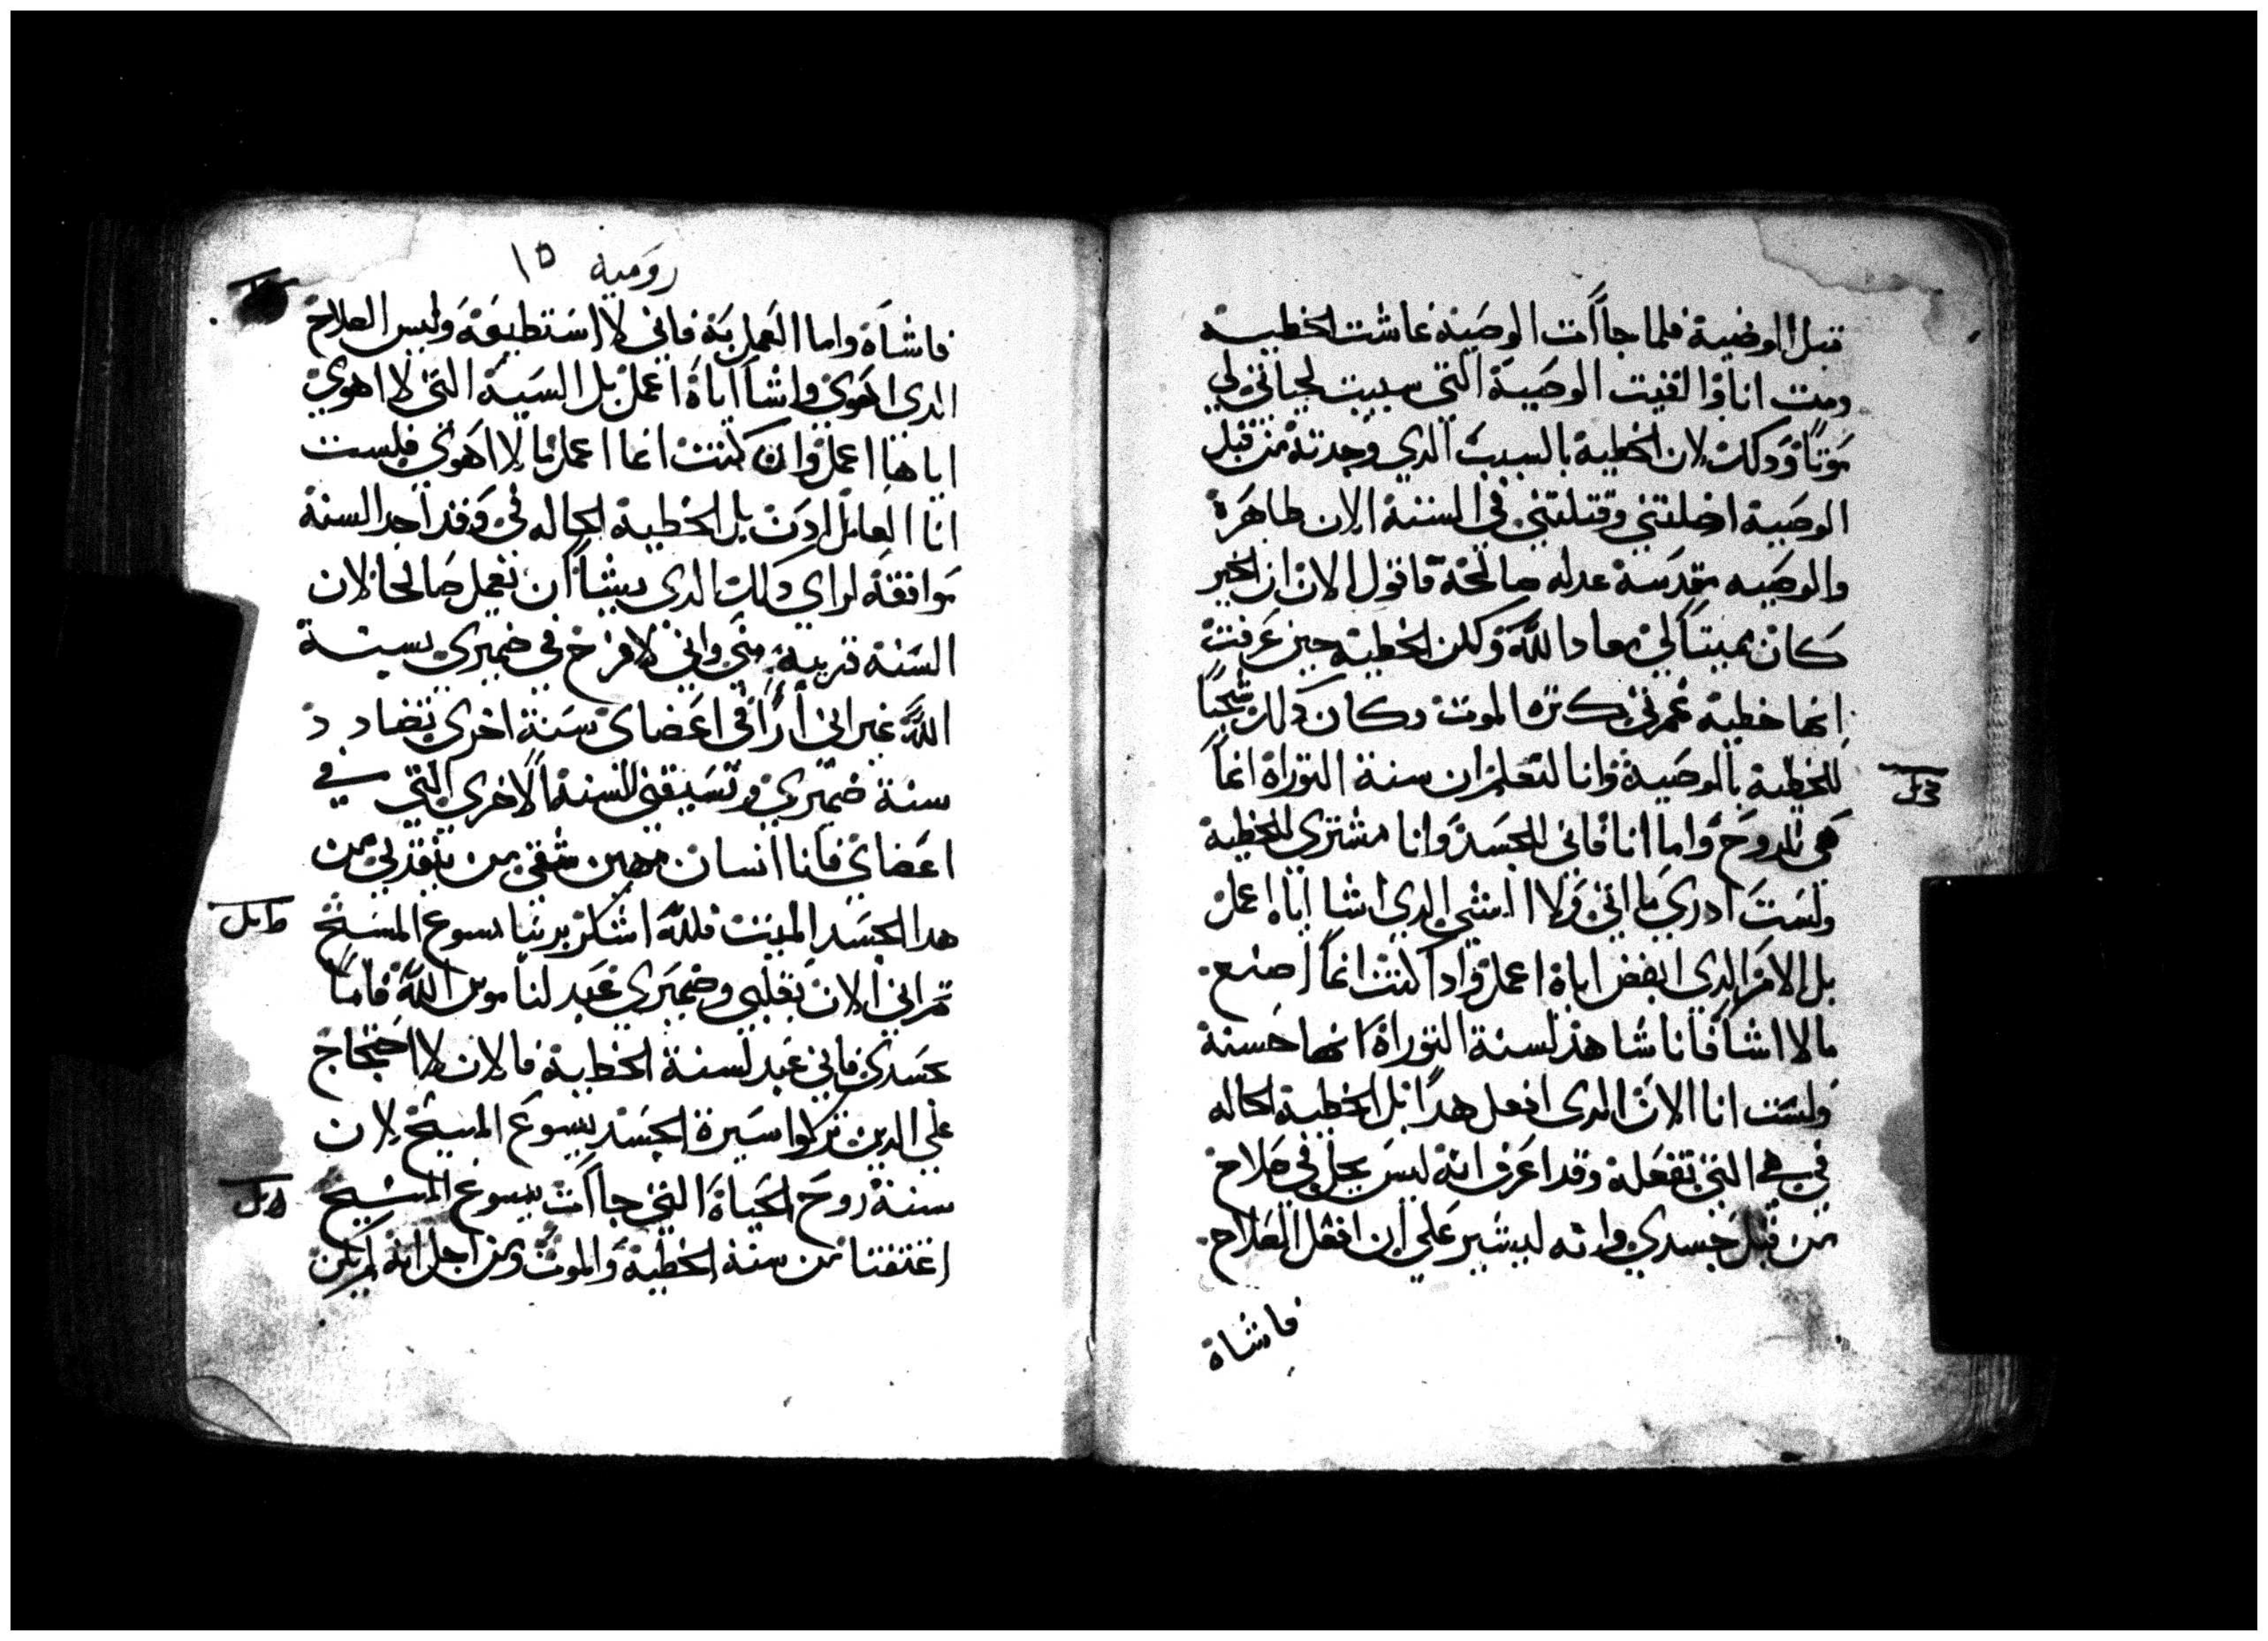 قبل الوصية فلما جاات الوصية عاشت الخطية
ومت انا والفيت الوصية التي سببت لحياتي لي
موتا وذلك لان الخطية بالسبب الدي وجدته من قبل
الوصية اضلتني وقتلتني في السنة الان طاهرة
والوصيه مقدسة عدله صالحة فاقول الان ان الخير
كان مميتا لي معاد الله ولكن الخطية حين عرفت
انها خطية غمرتني بكثرة الموت وكان ذلك شجبا
للخطية بالوصية وانا لنعلم ان سنة التوراة انما
هي للروح واما انا فاني للجسد وانا مشتري للخطية
ولست ادري ما اتي ولا الشي الدي اشا اياه اعمل
بل الامر الدي ابغض اياه اعمل واذا كنت انما اصنع
ما لا اشا فانا شاهد لسنة التوراة انها حسنة
ولست انا الان الدي افعل هدا بل الخطية الحاله
في هي التي تفعله وقد اعرف انه ليس يحل في صلاح
من قبل جسدي وانه ليسير علي ان افعل الصلاح
فاشاة
رومية ١٥
فاشاة واما العمل به فاني لا استطيعه وليس الصلاح
الدي اهوي واشا اياه اعمل بل السية التي لا اهوي
اياها اعمل وان كنت انما اعمل ما لا اهوي فلست
انا العامل ادن بل الخطية الحاله في وقد اجد السنة
موافقة لراي ذلك الدي يشا ان يعمل صالحا لان
السنة قريبة مني واني لافرح في ضميري بسنة
الله غير اني اري في اعضاي سنة اخري تضادد
سنة ضميري وتسبيني للسنة الاخري التي في
اعضاي فانا انسان مهين شقي من ينقدني من
هدا الجسد الميت فلله اشكر بربنا يسوع المسيح
ثم اني الان بقلبي وضميري عبد لناموس الله فاما
بجسدي فاني عبد لسنة الخطية فالان لا احتجاج
علي الدين تركوا سيرة الجسد بيسوع المسيح لان
سنة روح الحياة التي جاات بيسوع المسيح
اعتقتنا من سنة الخطية والموت ومن اجل انه لم يكن